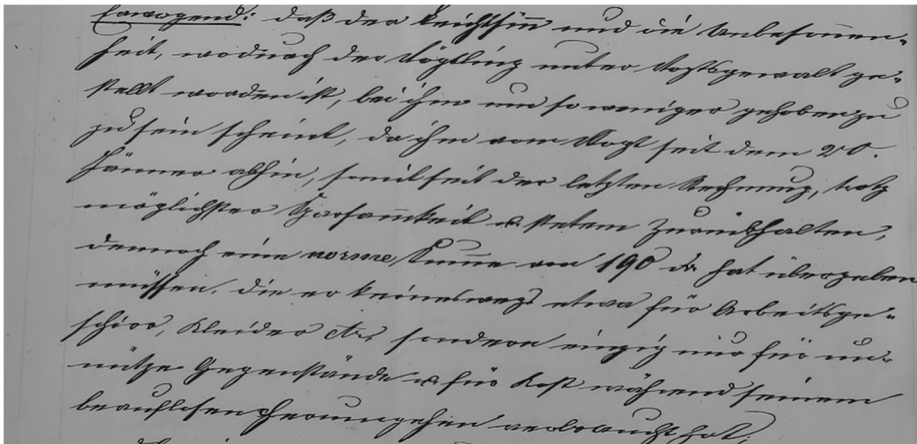 Erwogend: daß der Leichtsinn und die Unbesonnen-
heit, wodurch der Vögtling unter Vogtsgewalt ge-
stellt worden ist, bei ihm um so weniger gehoben zu
zu sein scheint, da ihm vom Vogt seit dem 20.
Jänner abhin, somit seit der letzten Rechnung, trotz
möglichster Sparsamkeit u. stetem Zurückhalten,
dennoch eine enorme Summe von 190 fr hat übergeben
müssen, die er keineswegs etwa für Arbeitsge-
schirr, Kleider etc, sondern einzig nur für un-
nütze Gegenstände u. für Kost während seinem
beruflosen Herumgehen verbraucht hat;